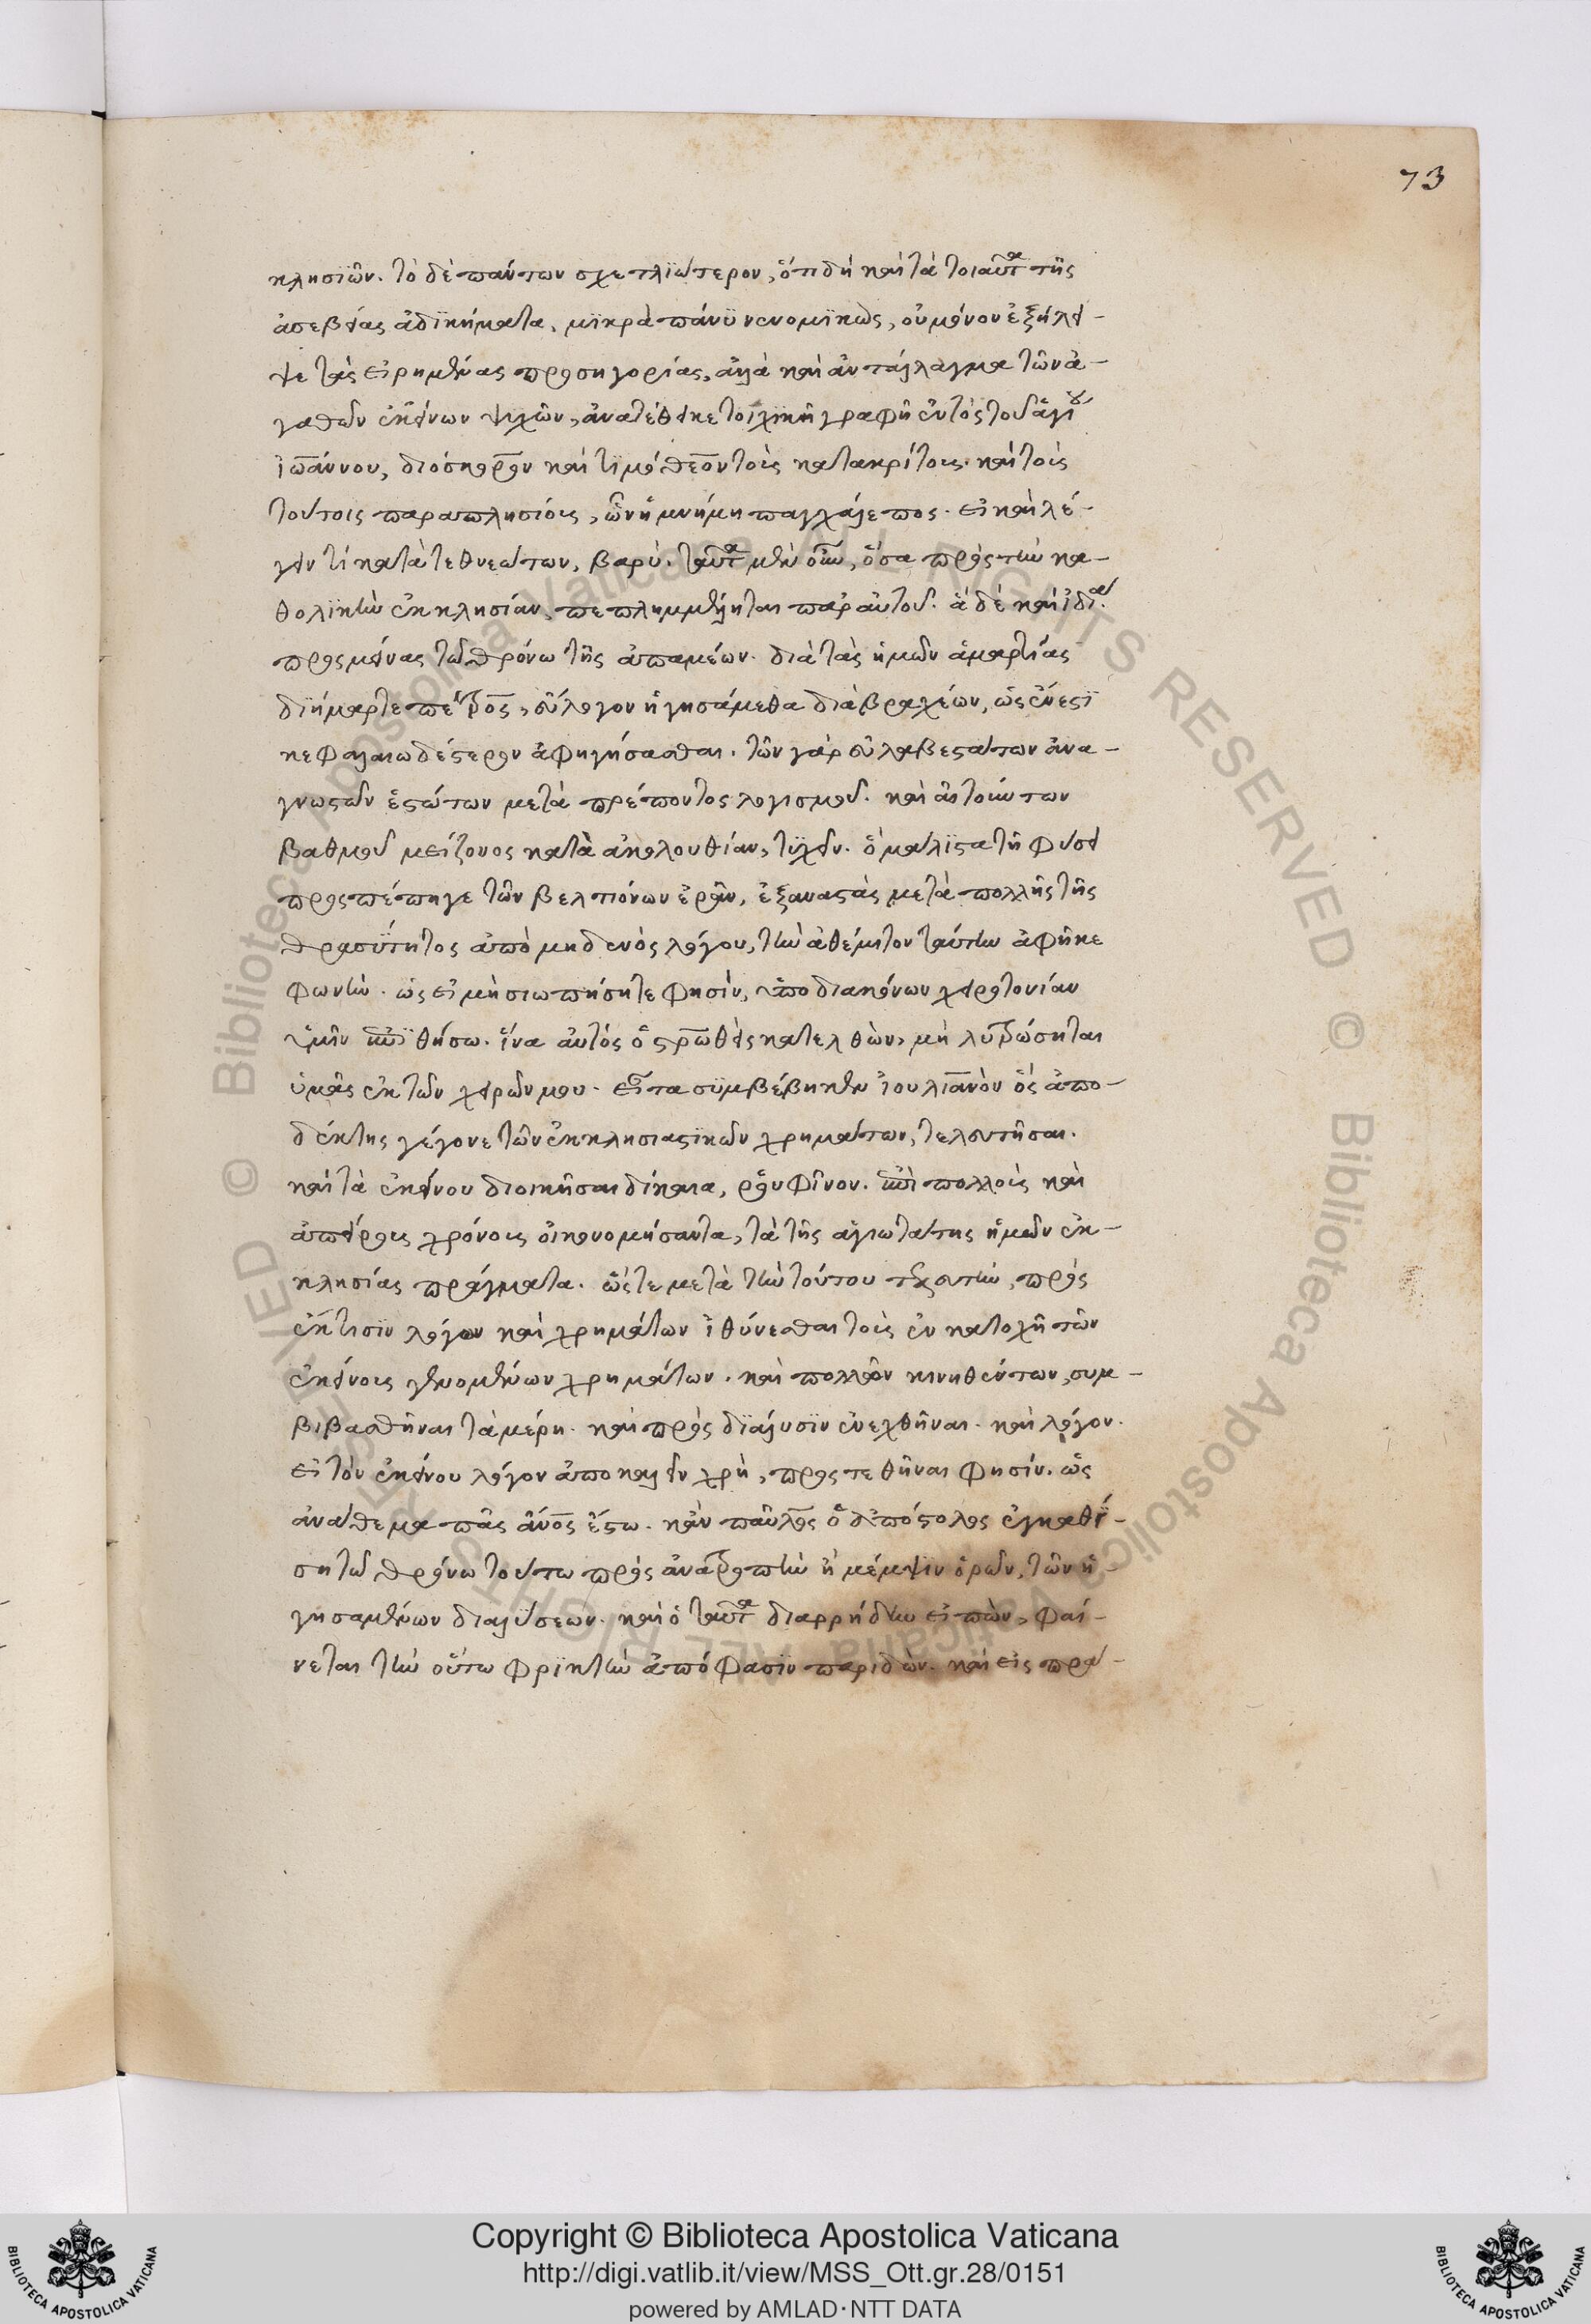 73
κλησιῶν. τὸ δὲ πάντων σχετλϊώτερον, ὅτι δὴ καὶ τὰ τοιαῦτα τῆς
ἀσεβείας ἀδϊκήματα, μϊκρὰ πάνϋ νενομϊκὼς, οὐ μόνον ἐξήλει-
ψε τὰς εἰρημένας προσηγορίας, ἀλλὰ καὶ ἀντάλλαγμα τῶν ἀ-
γαθῶν ἐκείνων ψυχῶν, ἀνατέθεικε τοιχϊκῆ γραφῆ ἐντὸς τοῦ ἁγίου
ἰωάννου, διόσκορον καὶ τϊμόθεον τοὺς κατακρίτους. καὶ τοὺς
τούτοις παραπλησίους, ὧν ἡ μνήμη παγχάλεπος. εἰ καὶ λέ-
γειν τὶ κατὰ τεθνεώτων, βαρύ. ταῦτα μὲν οὖν, ὅσα πρὸς τὴν κα-
θολϊκὴν ἐκκλησίαν, πεπλημμέληται παρ αὐτοῦ. ἃ δὲ καὶ ἰδία
προσμείνας τῶ θρόνω τῆς ἀπαμέων. διὰ τὰς ἡμῶν ἁμαρτίας
διήμαρτε πέτρος, εὔλογον ἡγησάμεθα διὰ βραχέων, ὡς ἔνεστϊ
κεφαλαιωδέστερον ἀφηγήσασθαι. τῶν γὰρ εὐλαβεστάτων ἀνα-
γνωστῶν ἑστώτων μετὰ πρέποντος λογισμοῦ. καὶ αἰτούντων
βαθμοῦ μείζονος κατὰ ἀκολουθίαν, τϋχεῖν. ὃ μάλϊστα τῆ φύσει
προσπέπηγε τῶν βελτιόνων ἐρᾶν, ἐξαναστὰς μετὰ πολλῆς τῆς
θρασϋτητος ἀπὸ μηδενὸς λόγου, τὴν ἀθέμιτον ταύτην ἀφῆκε
φωνὴν. ὡς εἰ μὴ σιωπήσητε φησὶν, ὑποδιακόνων χειροτονίαν
ὑμῖν ἐπϊθήσω. ἵνα αὐτὸς ὁ σταυρωθεὶς κατελθὼν, μὴ λυτρώσηται
ὑμᾶς ἐκ τῶν χειρῶν μου. εἶτα συμβέβηκεν ἰουλιανὸν ὃς ἀπο-
δέκτης γέγονε τῶν ἐκκλησιαστϊκῶν χρημάτων, τελευτῆσαι.
καὶ τὰ ἐκείνου διοικῆσαι δίκαια, ρουφῖνον. ἐπὶ πολλοῖς καὶ
ἀπείροις χρόνοις οἰκονομήσαντα, τὰ τῆς ἁγιωτάτης ἡμῶν ἐκ-
κλησίας πράγματα. ὥστε μετὰ τὴν τούτου τελευτὴν, πρὸς
ἔκτισϊν λόγων καὶ χρημάτων ἰθύνεσθαι τοὺς ἐν κατοχῆ τῶν
ἐκείνοις γενομένων χρημάτων. καὶ πολλῶν κινηθέντων, συμ-
βιβασθῆναι τὰ μέρη. καὶ πρὸς δϊάλυσϊν ἐνεχθῆναι. καὶ λόγον.
εἰ τὸν ἐκείνου λόγον ἀποκαλεῖν χρὴ, προστεθῆναι φησίν. ὡς
ἀνάθεμα πᾶς ἄνος ἔστω. κἂν παῦλος ὁ ἀπόστολος ἐγκαθΐ-
ση τῶ θρόνω τούτω πρὸς ἀνατροπὴν ἢ μέμψιν ὁρῶν, τῶν ἡ-
γησαμένων διαλύσεων. καὶ ὁ ταῦτα διαρρήδην εἰπὼν, φαί-
νεται τὴν οὕτω φρϊκτὴν ἀπόφασϊν παριδὼν. καὶ εἰς πρα-
Copyright © Biblioteca Apostolica Vaticana
http://digi.vatlib.it/view/MSS_Ott.gr.28/0151
powered by AMLAD·NTT DATA